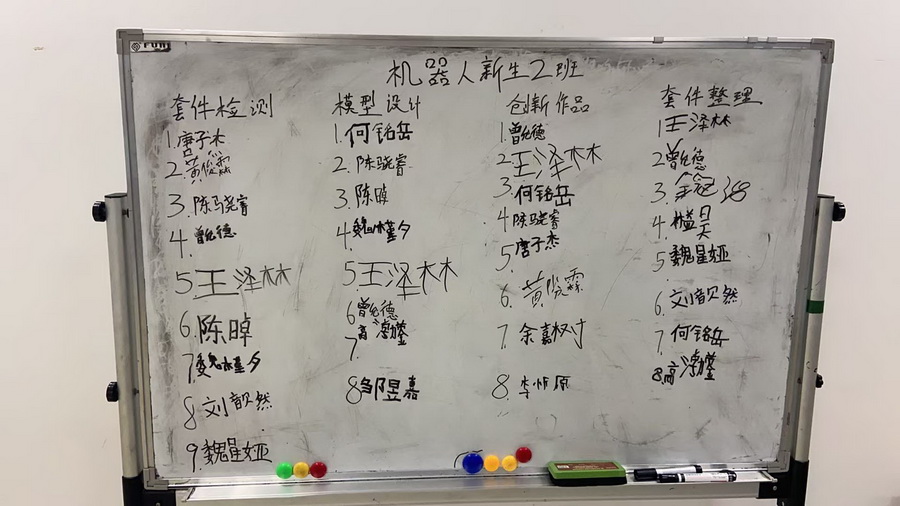 机器人新生2班
套件检测
1.唐子杰
2.黄俊霖
3.陈骁睿
4.曾纪德
5.王泽林
6.陈晫
7.魏槿夕
8.刘歆然
9.魏星娅
模型设计
1.何铭岳
2.陈骁睿
3.陈晫
4.魏槿夕
5.王泽林
6.曾纪德
7.高
8.邹昱嘉
创新作品
1.曾纪德
2.王泽林
3.何铭岳
4.陈骁睿
5.唐子杰
6.黄俊霖
7.余嘉树
8.李 原
套件整理
1.王泽林
2.曾纪德
3.
4.
5.魏星娅
6.刘歆然
7.何铭岳
8.高